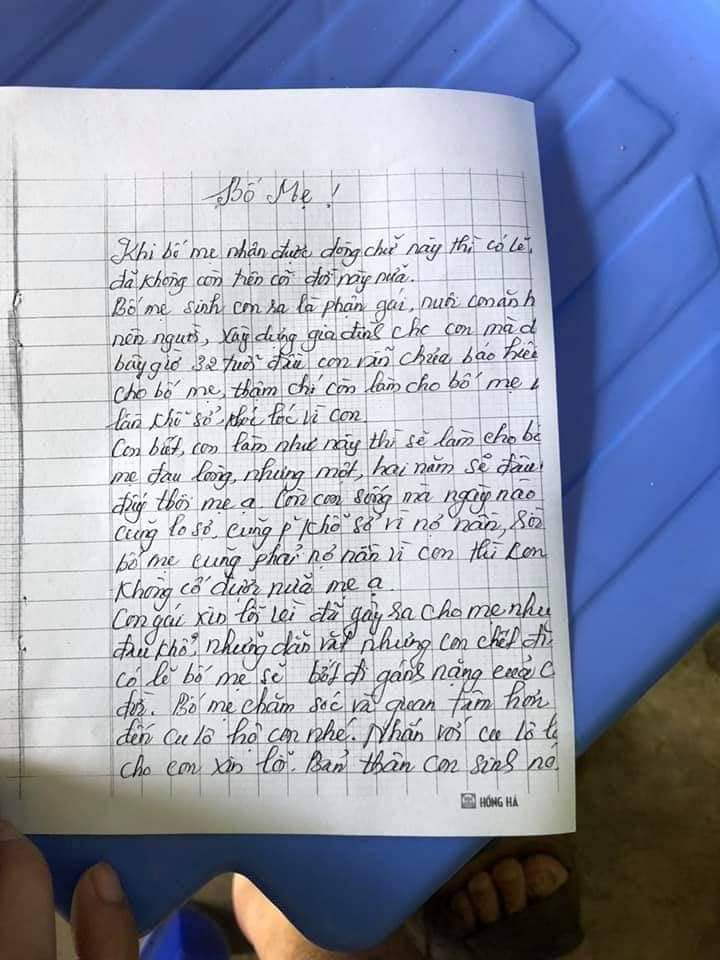 Bố Mẹ!
Khi bố mẹ nhận được dòng chữ này thì có lẽ,
đã không còn trên cõi đời này nữa.
Bố mẹ sinh con ra là phận gái, nuôi con ăn h
nên người, xây dựng gia đình cho con mà
bây giờ 32 tuổi đầu con vẫn chưa báo hiế
cho bố mẹ, thậm chí còn làm cho bố mẹ
khổ sở, vì con
Con biết, con làm như này thì sẽ làm cho bố
mẹ đau lòng, nhưng một, hai năm sẽ đâu
đấy thôi mẹ ạ. Còn con sống mà ngày nào
cũng lo sợ, cũng p' khổ sở vì nợ nần,
bố mẹ cũng phải nợ nần vì con thì con
không cố được nữa mẹ ạ.
Con gái xin lỗi vì đã gây ra cho mẹ nhữ
đau khổ, những dằn vặt nhưng con chết đi
có lẽ bố mẹ sẽ bớt đi gánh nặng cuộc
đời. Bố mẹ chăm sóc và quan tâm hơn
đến cu lô hộ con nhé. Nhắn với cu lô là
cho con xin lỗi. Bản thân con sinh nó
HỒNG HÀ